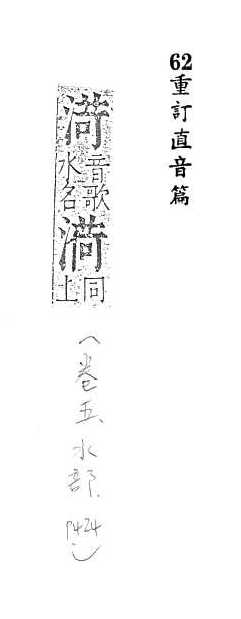 62重訂直音篇
音歌
水名
同
上
（卷五、水部、P424）